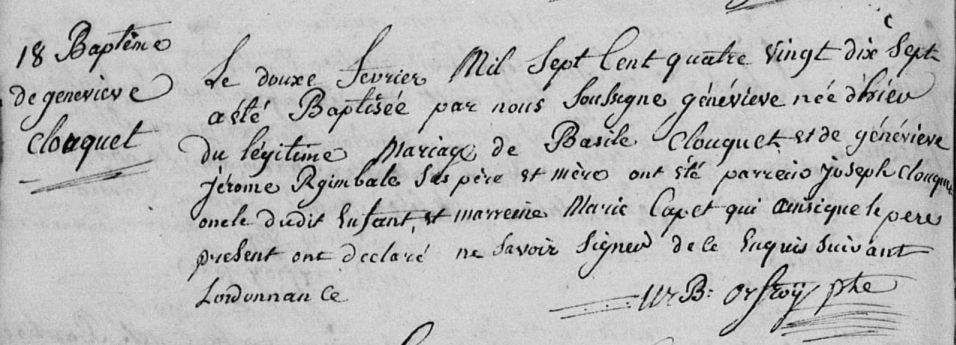 18 Baptême
de geneviève
Clouquet
Le douze fevrier Mil Sept Cent quatre vingt dix Sept
a été Baptisée par nous Soussigne généviève née d'hier
du légitime Mariage de Basile Clouquet et de généviève
jérome Rgimbale Ses père et mère ont été parrein joseph Clouquet
oncle dudit Enfant, et marreine Marie Capet qui ainsi que le pere
present ont declaré ne Savoir Signer de ce Enquis suivant
Lordonnance
ptre